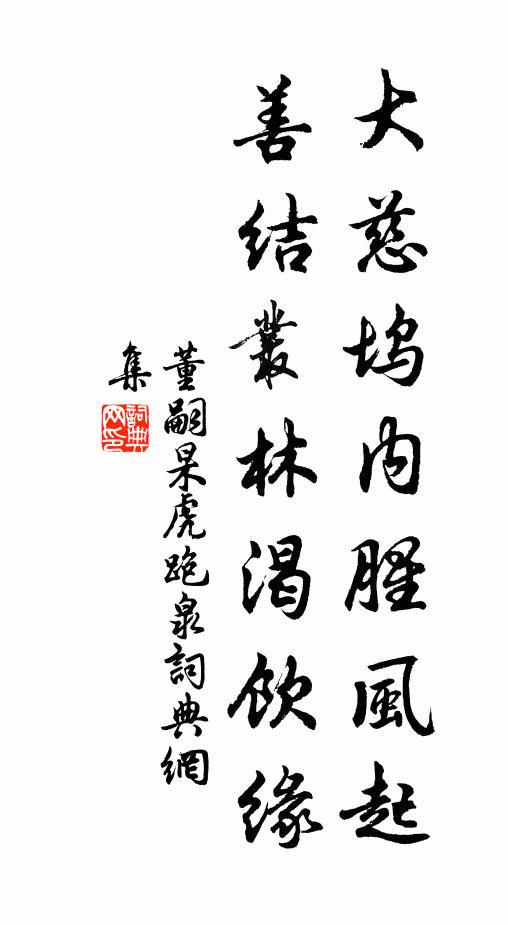 大慈塢内腥風起
善結叢林渴飲緣
董嗣杲虎跑泉詞典網
集
詞典
网印